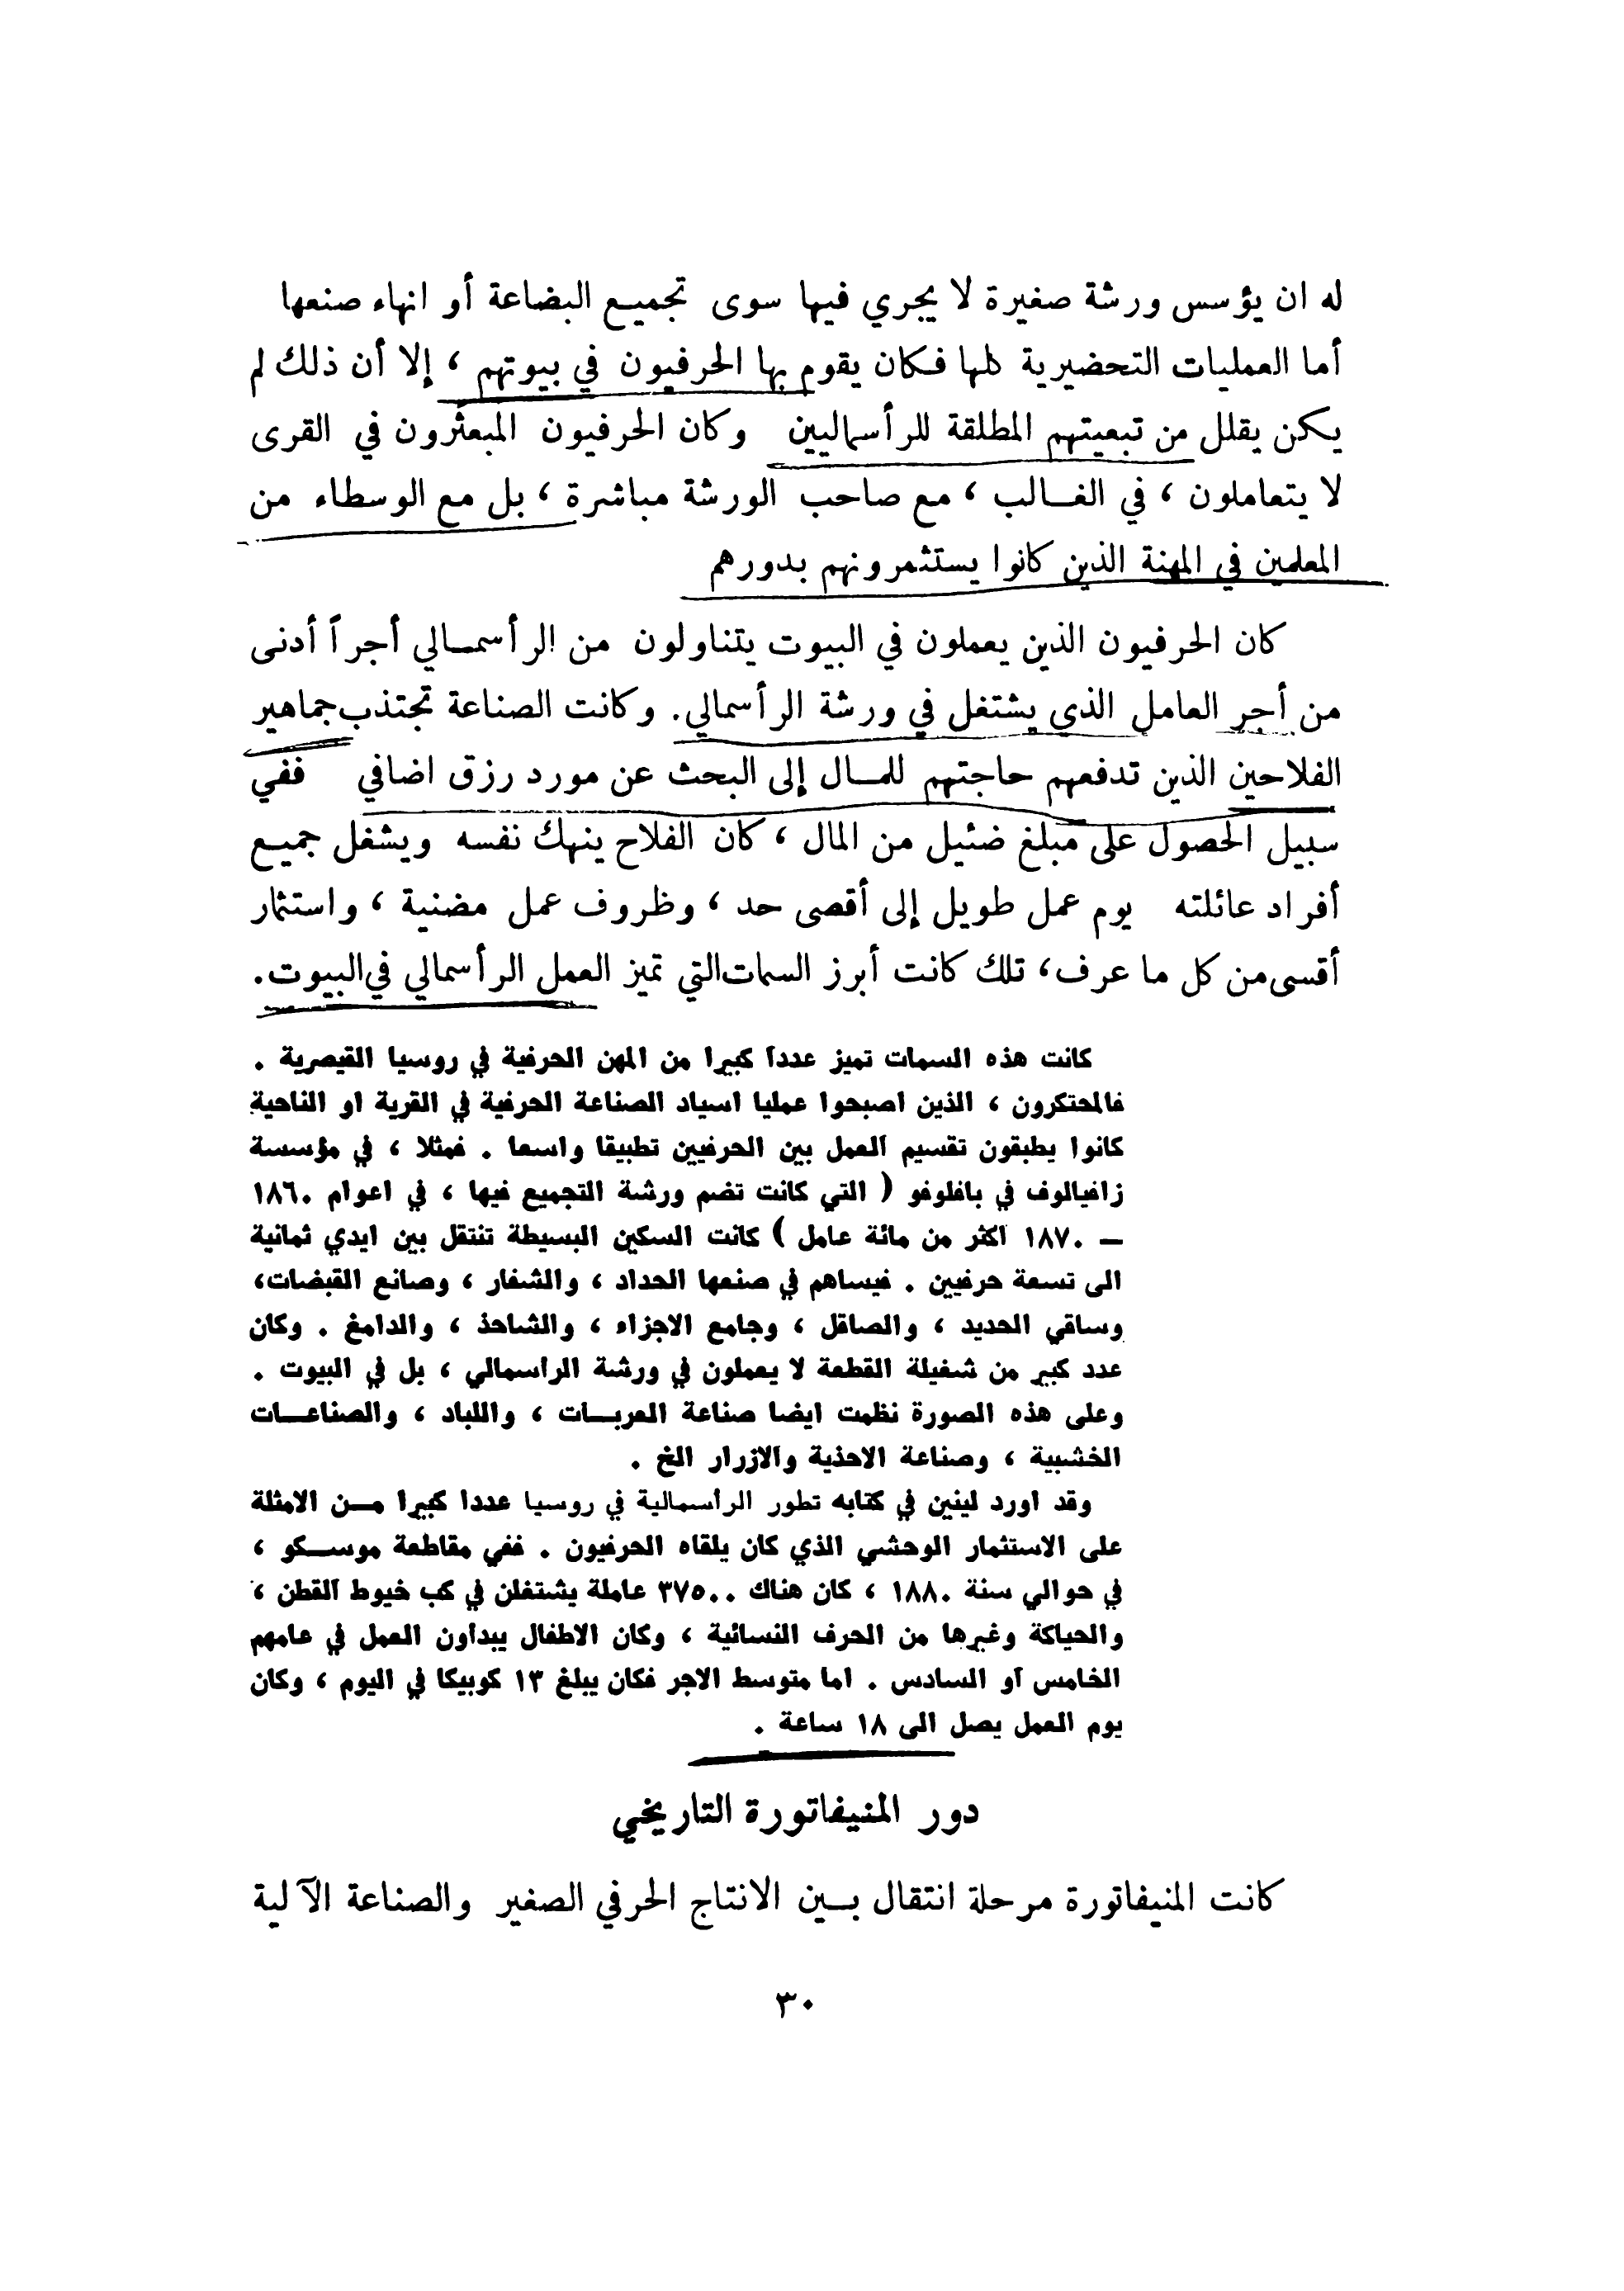 له ان يؤسس ورشة صغيرة لا يجري فيها سوى تجميع البضاعة أو انهاء صنعها
أما العمليات التحضيرية كلها فكان يقوم بها الحرفيون في بيوتهم ، إلا أن ذلك لم
يكن يقلل من تبعيتهم المطلقة للرأسماليين وكان الحرفيون المبعثرون في القرى
لا يتعاملون ، في الغالب ، مع صاحب الورشة مباشرة ، بل مع الوسطاء من
المعلمين في المهنة الذين كانوا يستثمرونهم بدورهم
كان الحرفيون الذين يعملون في البيوت يتناولون من الرأسمالي أجراً أدنى
من أجر العامل الذي يشتغل في ورشة الرأسمالي. وكانت الصناعة تجتذب جماهير
الفلاحين الذين تدفعهم حاجتهم للمال إلى البحث عن مورد رزق اضافي ففي
سبيل الحصول على مبلغ ضئيل من المال ، كان الفلاح ينهك نفسه ويشغل جميع
أفراد عائلته يوم عمل طويل إلى أقصى حد ، وظروف عمل مضنية ، واستثمار
أقسى من كل ما عرف ، تلك كانت أبرز السمات التي تميز العمل الرأسمالي في البيوت.
كانت هذه السمات تميز عدداً كبيرا من المهن الحرفية في روسيا القيصرية .
فالمحتكرون ، الذين اصبحوا عمليا اسياد الصناعة الحرفية في القرية او الناحية
كانوا يطبقون تقسيم العمل بين الحرفيين تطبيقا واسعا . فمثلا ، في مؤسسة
زافيالوف في بافلوفو ( التي كانت تضم ورشة التجميع فيها ، في اعوام ١٨٦٠
– ١٨٧٠ اكثر من مائة عامل ) كانت السكين البسيطة تنتقل بين ايدي ثمانية
الى تسعة حرفيين . فيساهم في صنعها الحداد ، والشفار ، وصانع القبضات،
وساقي الحديد ، والصاقل ، وجامع الاجزاء ، والشاحذ ، والدامغ . وكان
عدد كبير من شغيلة القطعة لا يعملون في ورشة الراسمالي ، بل في البيوت .
وعلى هذه الصورة نظمت ايضا صناعة العربات ، واللباد ، والصناعات
الخشبية ، وصناعة الاحذية والازرار الخ .
وقد اورد لينين في كتابه تطور الرأسمالية في روسيا عددا كبيرا من الامثلة
على الاستثمار الوحشي الذي كان يلقاه الحرفيون . ففي مقاطعة موسكو ،
في حوالي سنة ١٨٨٠ ، كان هناك ٣٧٥٠٠ عاملة يشتغلن في كب خيوط القطن ،
والحياكة وغيرها من الحرف النسائية ، وكان الاطفال يبداون العمل في عامهم
الخامس او السادس . اما متوسط الاجر فكان يبلغ ١٣ كوبيكا في اليوم ، وكان
يوم العمل يصل الى ١٨ ساعة .
دور المنيفاتورة التاريخي
كانت المنيفاتورة مرحلة انتقال بين الانتاج الحرفي الصغير والصناعة الآلية
٣٠